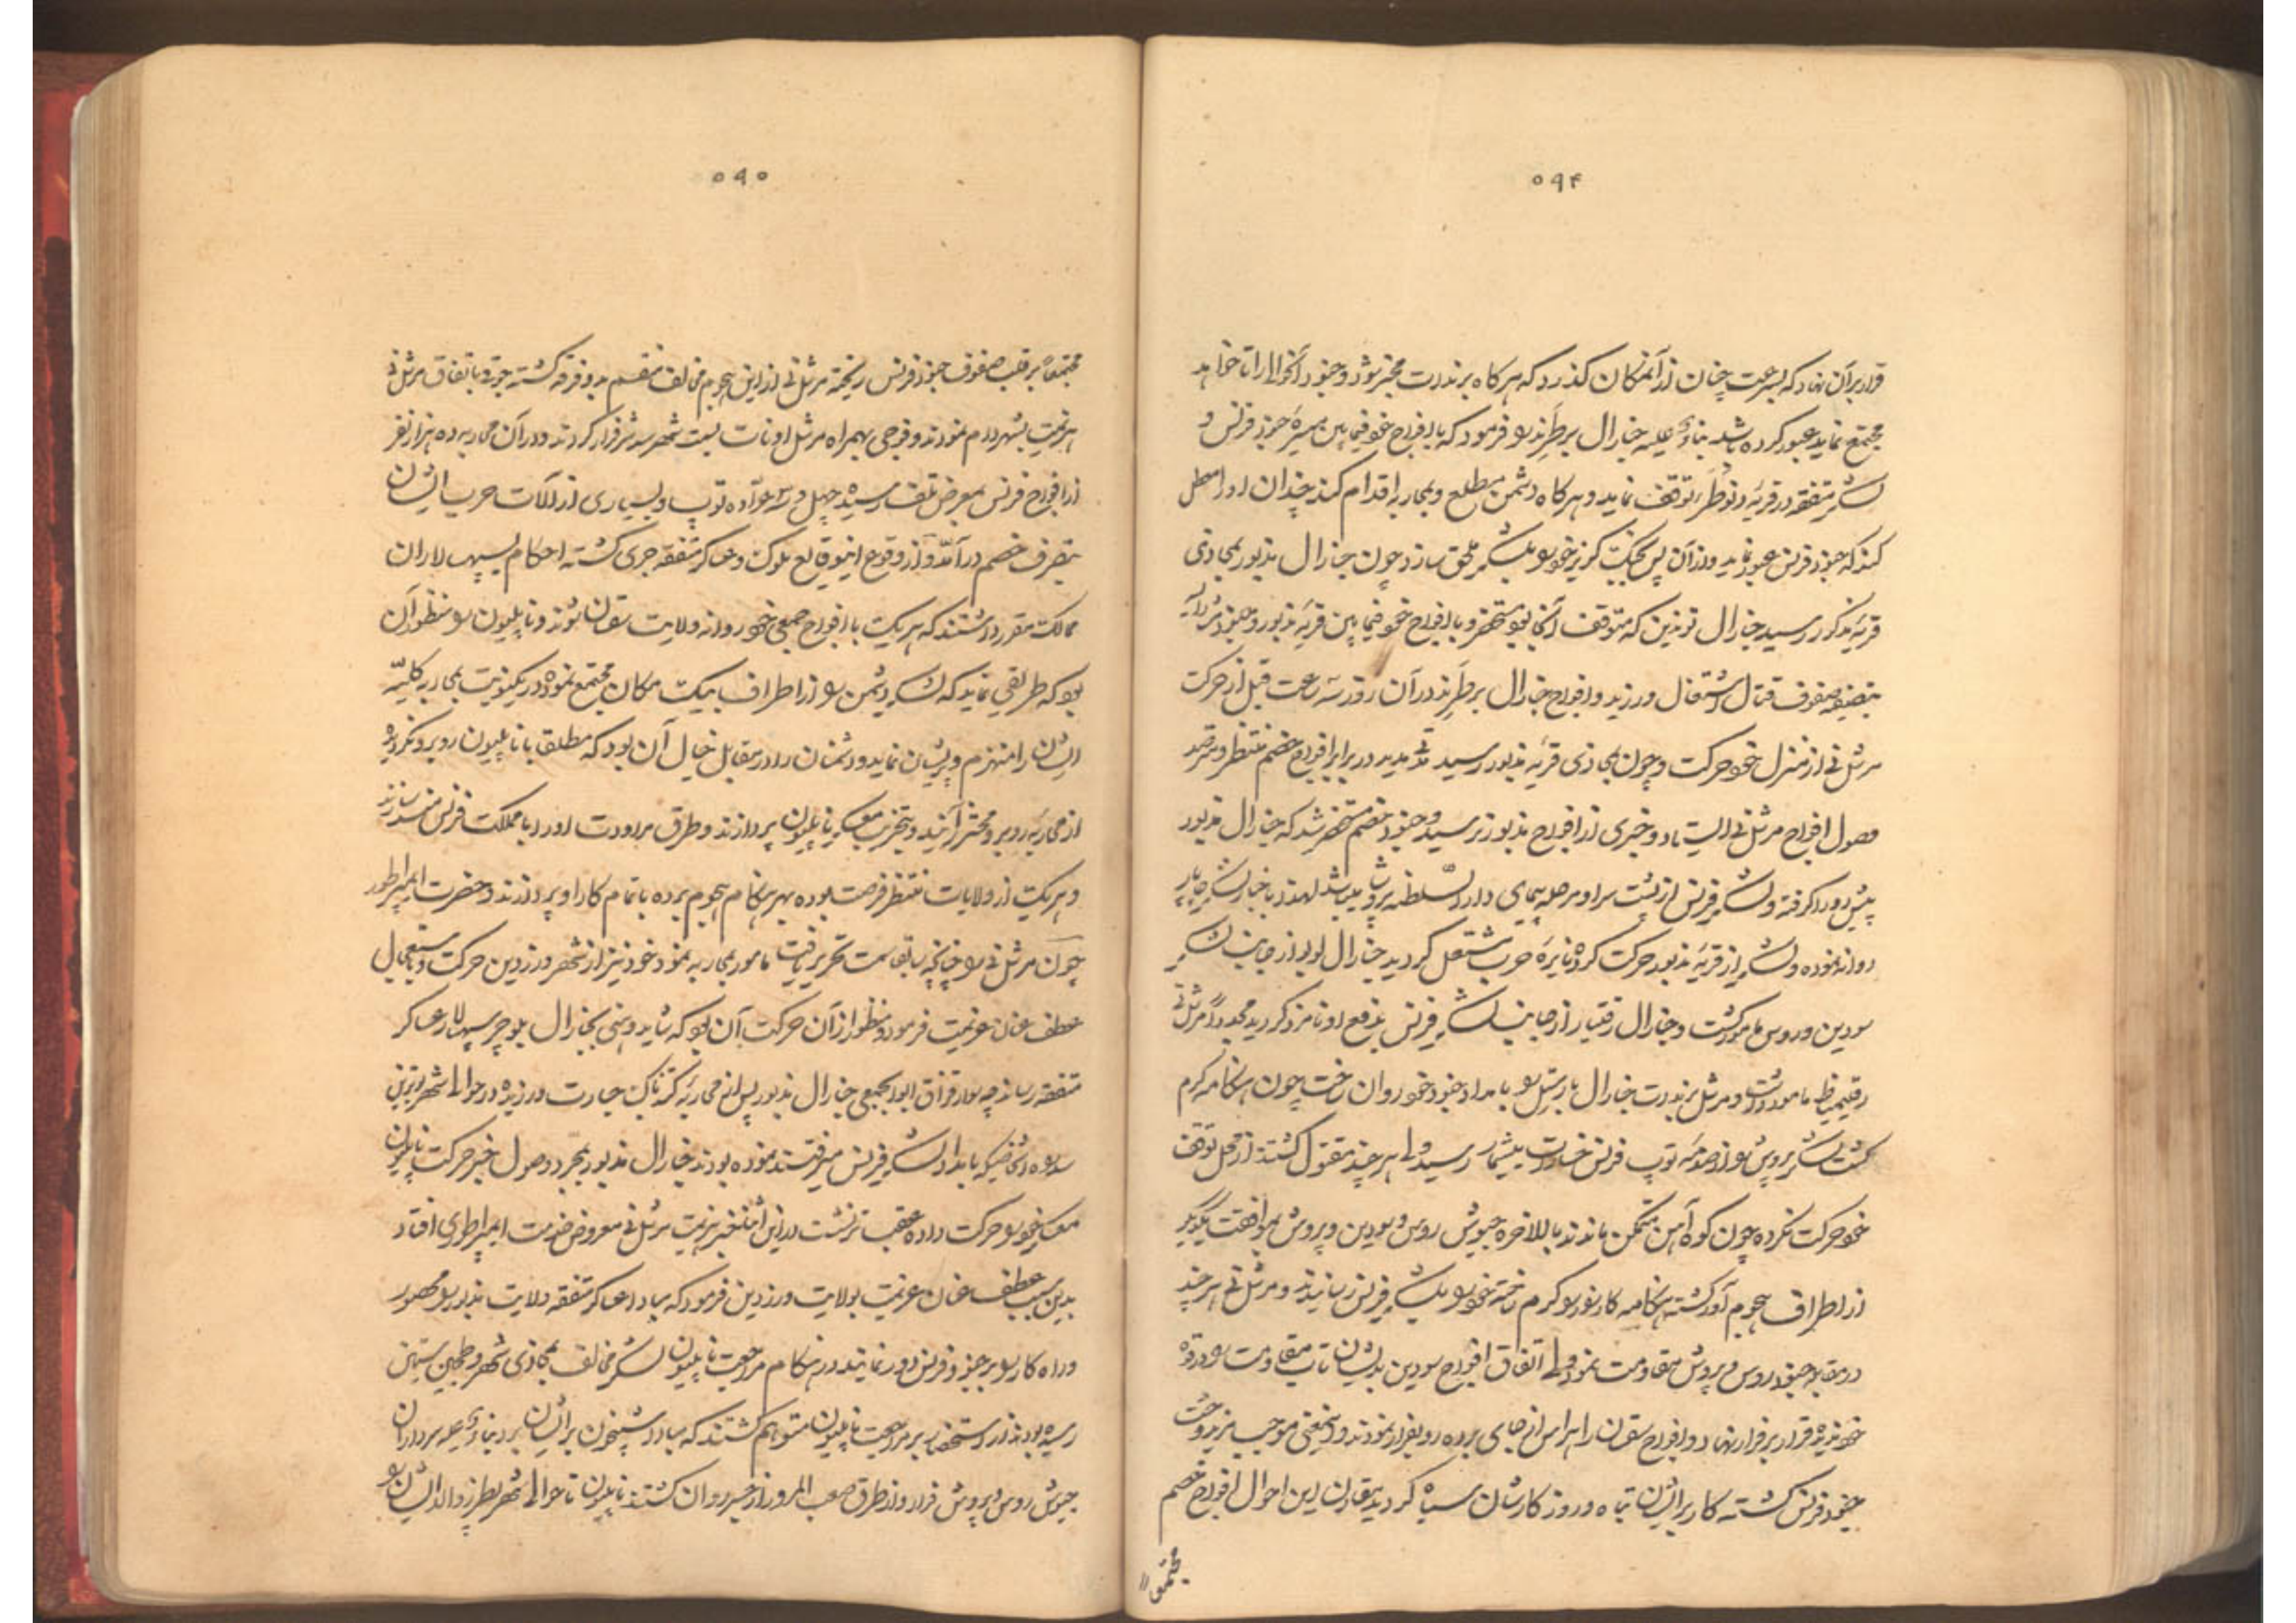 ۵۹۴
قرار بر آن نهاد که بسرعت چنان از آنمکان گذرد که هرگاه برندرت مخبر شود و جنود آنحوالی را تا خواهد
مجتمع نماید عبور کرده باشد بناء علیه جنرال برطرند را فرمود که با افواج خود فیمابین میسرهٔ جنود فرنس و
لشکر متفقه در قریهٔ توقف نماید و هرگاه دشمن مطلع و بمحاربه اقدام کند چندان او را معطل
کند که جنود فرنس عبور نماید و از آن پس بجنک گریز خود را بلشکر ملحق سازد چون جنرال مذبور بمحاذی
قریهٔ مذکور رسید جنرال تونذین که متوقف آنجا بود مستحضر و با افواج خود فیمابین قریهٔ مذبور و جنود
بتصفیه صفوف قتال اشتغال ورزید و افواج جنرال برطرند در آن روز سه ساعت قبل از حرکت
مرشل نی از منزل خود حرکت و چون بمحاذی قریهٔ مذبور رسید مدتی مدید در برابر افواج خصم منتظر و مترصد
وصول افواج مرشل نی ایستاد و خبری از افواج مذبور نرسید و جنود خصم مستحضر شد که جنرال مذبور
پیش رو را گرفته و لشکر فرنس از پشت سر او مرحله پیمای دار السلطنه پروش میباشد لهذا باخبار لشکر چاپار
روانه نموده و لشکر از قریهٔ مذبور حرکت کرده نایرهٔ حرب مشتعل گردید جنرال لوبو از جانب لشکر
سودین و روس مامور گشت و جنرال رقنیار از جانب لشکر فرنس بدفع او نامزد گردید مجدداً مرشل نی
مامور داشت و مرشل برندرت جنرال را بامداد جنود خود روان ساخت چون هنکامه گرم
گشت لشکر پروش را از صدمهٔ توپ فرنس خسارت بیشمار رسید ولی هرچند مقتول گشتند از محل توقف
خود حرکت نکرده چون کوه آهن متمکن ماندند بالاخره جیوش روس و سودین و پروش بموافقت یکدیگر
از اطراف هجوم آور گشته هنکامهٔ کارزار را گرم ساخته خود را بلشکر فرنس رسانیدند و مرشل نی هر چند
در مقابل جنود روس و پروش مقاومت نمود ولی اتفاق افواج سودین بدیشان تاب مقاومت را در قوه
خود ندیده قرار بر فرار نهاد و افواج سقسان را هراس از جای برده رو بفرار نمودند و اینمعنی موجب مزید وحشت
جنود فرنس گشته کار بر ایشان تباه و روزگارشان سیاه گردید مقارن این احوال افواج خصم
مجتمعاً
۵۹۵
مجتمعاً بر قلب صفوف جنود فرنس ریخته مرشل نی از این هجوم مخالف منقسم بدو فرقه گشته جوقی باتفاق مرشل نی
هزیمت بشهر دام نمودند و فوجی بهمراه مرشل اودنات بسمت شهر فرار کردند و در آن محاربه ده هزار نفر
از افواج فرنس بمعرض تلف رسیده چهل و سه عراده توپ و بسیاری از آلات حرب ایشان
بتصرف خصم در آمد و از وقوع اینوقایع ملوک و عساکر متفقه جری گشته احکام بسپهسالاران
ممالک مقرر داشتند که هریک با افواج جمعی خود روانه ولایت سقسان شوند و ناپلیون را منظور آن
بود که طریقی نماید که لشکر دشمن را از اطراف بیک مکان مجتمع نموده در یکنوبت بمحاربه کلیه
ایشان را منهزم و پریشان نماید و دشمنان را در مقابل خیال آن بود که مطلقا با ناپلیون روبرو نگردیده
از محاربه روبرو محترز آیند و بتخریب معسکر ناپلیون پردازند و طرق مراودت او را با مملکت فرنس مسدود سازند
و هریک از ولایات منتظر فرصت بوده بهر هنکام هجوم برده باتمام کار او پردازند و حضرت امپراطور
چون مرشل نی را چنانچه سابقا سمت تحریر یافت مامور بمحاربه نمود خود نیز از شهر درزدین حرکت و باستعجال
عطف عنان عزیمت فرمود و منظور از آن حرکت آن بود که شاید وهنی بجنرال بلوچر سپهسالار عساکر
متفقه رساند چه سوار قزاق ابوابجمعی جنرال مذبور پس از محاربه جسارت ورزیده در حوالی شهر درزدین
سد راه اشخاصیکه بامداد لشکر فرنس میرفتند نموده بودند جنرال مذبور بمجرد وصول خبر حرکت ناپلیون
معسکر خود را حرکت داده عقب تر نشست در این اثنا خبر هزیمت مرشل نی معروض خدمت امپراطوری افتاد
بدین سبب عطف عنان عزیمت بولایت درزدین فرمود که مبادا عساکر متفقه ولایت مذبور را محصور
و راه کار را بر جنود فرنس دور نمایند در هنکام مراجعت ناپلیون لشکر مخالف بمحاذی شهر
رسیده بودند از استحضار بر مراجعت ناپلیون متوهم گشتند که مبادا شبیخون بر ایشان برد بناء علیه سرداران
جیوش روس و پروش فرار و از طرق صعب المرور از خیر روان گشتند ناپلیون تا حوالی شهر پطرزوالد ایشان را